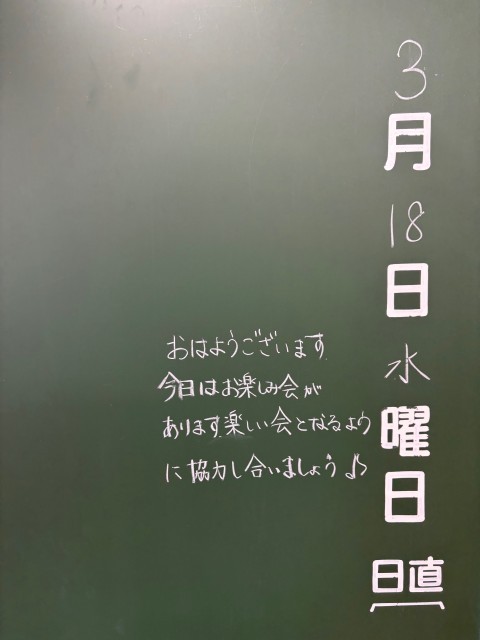 3月18日水曜日
日直
おはようございます
今日はお楽しみ会が
あります。楽しい会となるよう
に協力し合いましょう♪